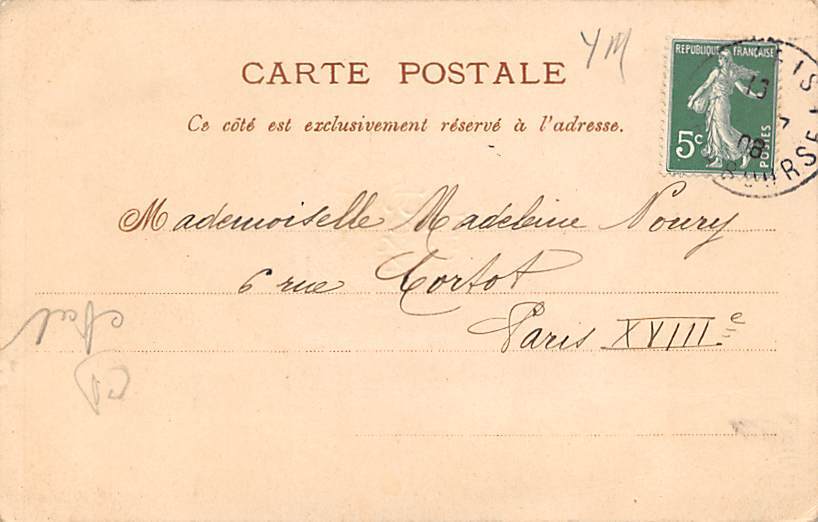 YM
CARTE POSTALE
Ce côté est exclusivement réservé à l'adresse.
REPUBLIQUE FRANÇAISE
5c
POSTES
08
Mademoiselle Madeleine Noury
6 rue Cortot
Paris XVIIIe